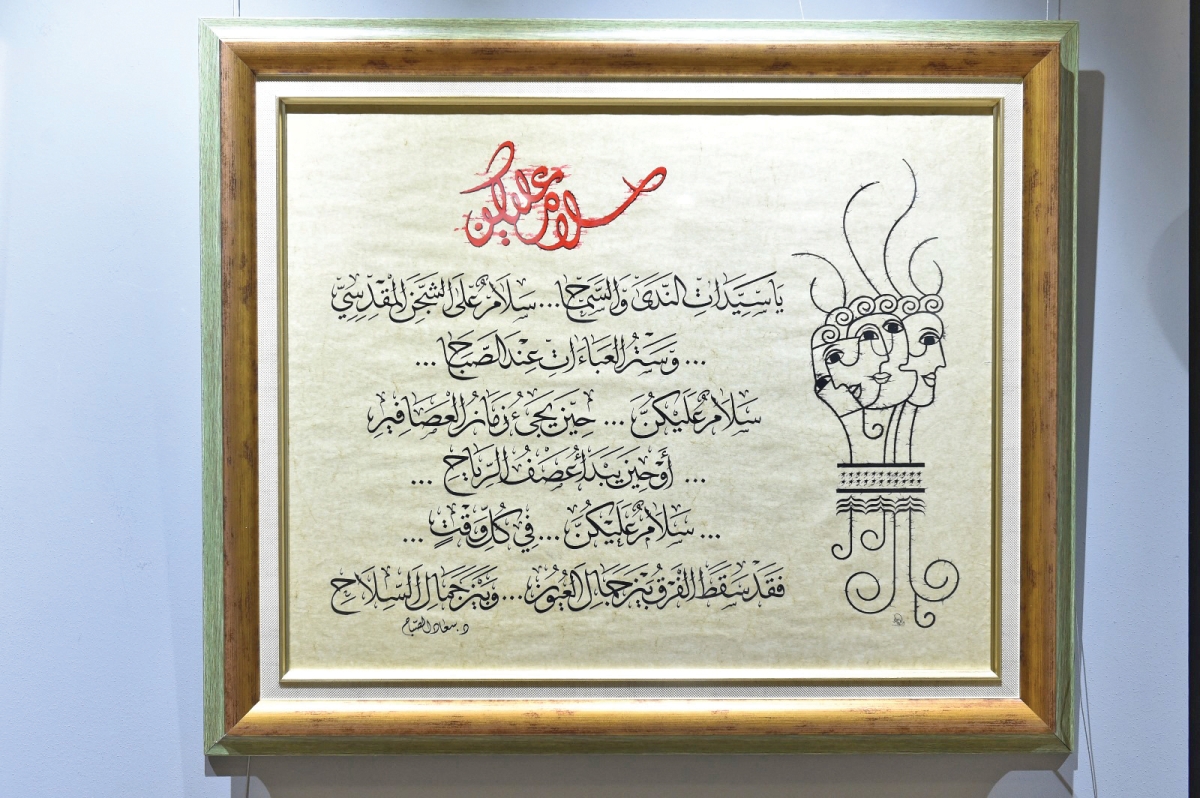 سلام عليكن
يَا سَيِّدَاتِ النَّدَى وَالسَّمَاحِ... سَلَامٌ عَلَى الشَّجَنِ الْمَقْدِسِيِّ
... وَسِتْرُ الْعَبَاءَاتِ عِنْدَ الصَّبَاحِ ...
سَلَامٌ عَلَيْكُنَّ ... حِيْنَ يَجِيْءُ زَمَانُ الْعَصَافِيرِ
... أَوْ حِينَ يَبْدَأُ عَصْفُ الرِّيَاحِ ...
... سَلَامٌ عَلَيْكُنَّ ... فِي كُلِّ وَقْتٍ ...
فَقَدْ سَقَطَ الْفَرْقُ بَيْنَ جَمَالِ الْعُيُونِ ... وَبَيْنَ جَمَالِ السِّلَاحِ
د. سعاد الصباح